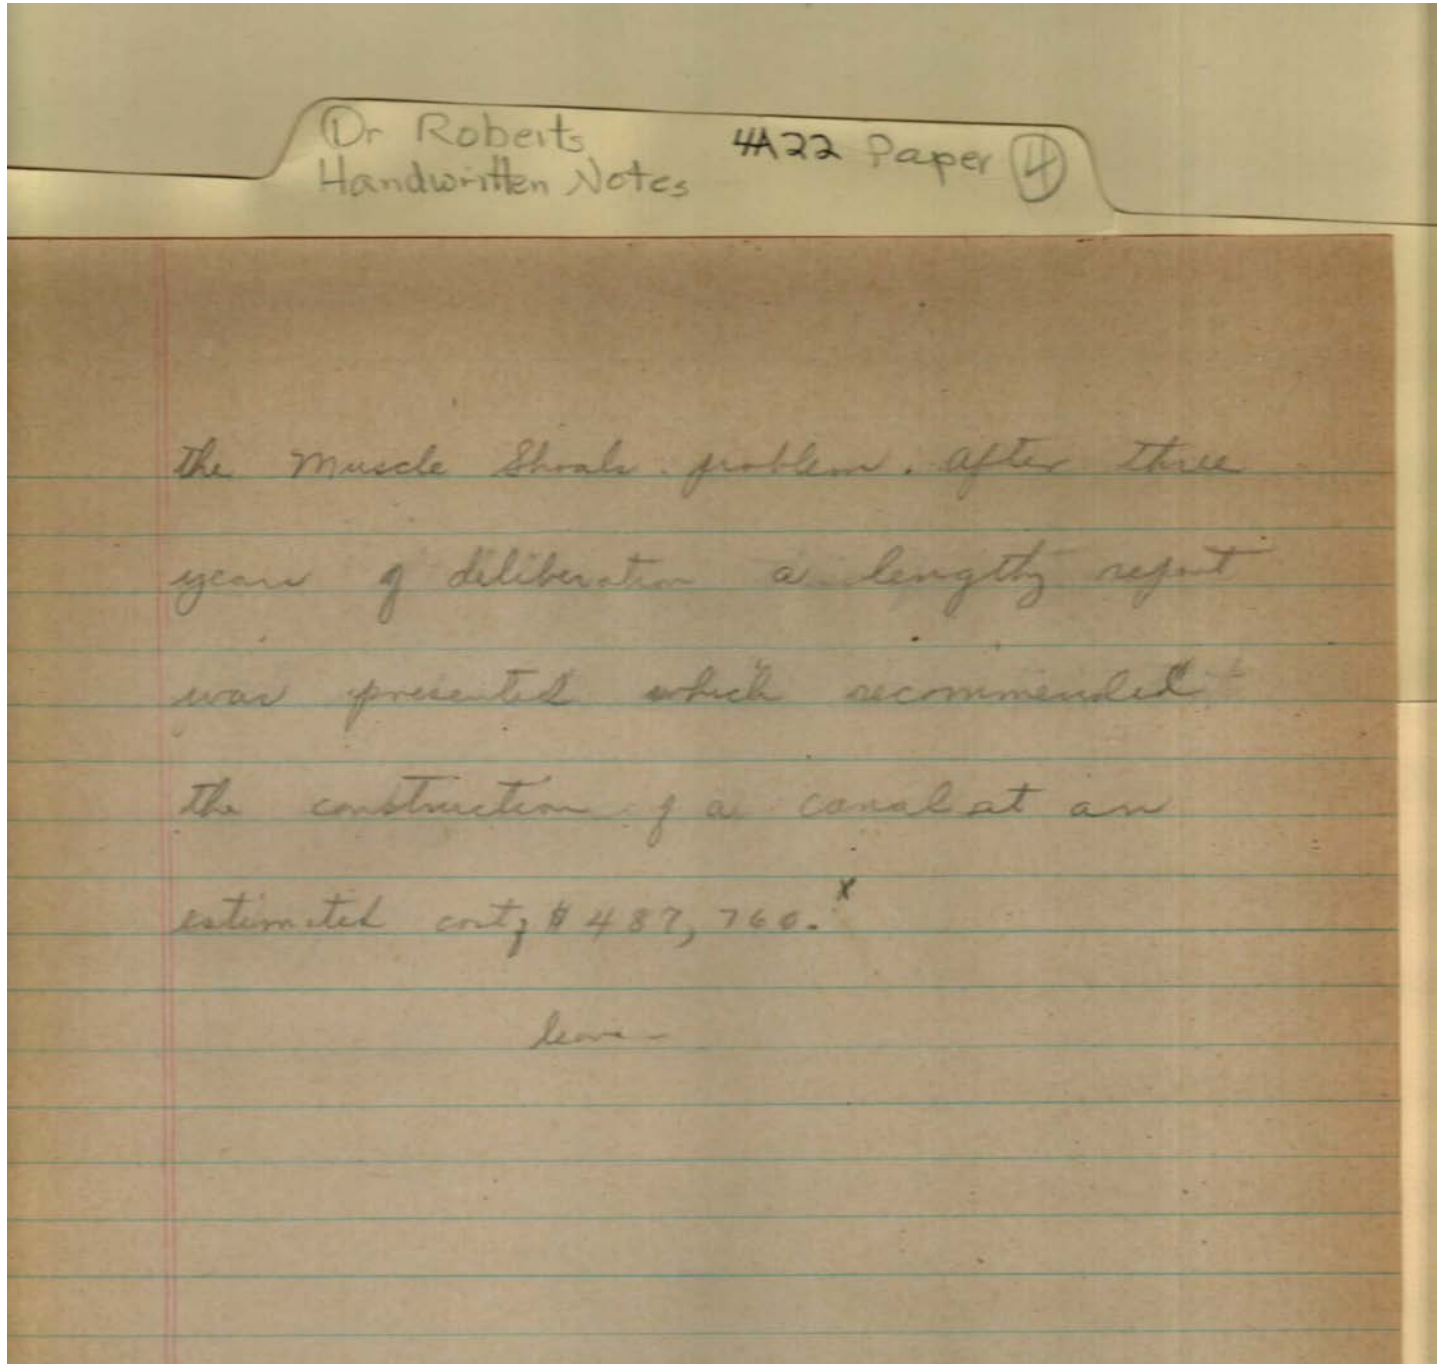 Dr Roberts 4A22 Paper 4
Handwritten Notes
the Muscle Shoals problem. After three
years of deliberation a lengthy report
was presented which recommended
the construction of a canal at an
estimated cost of $487,760. x